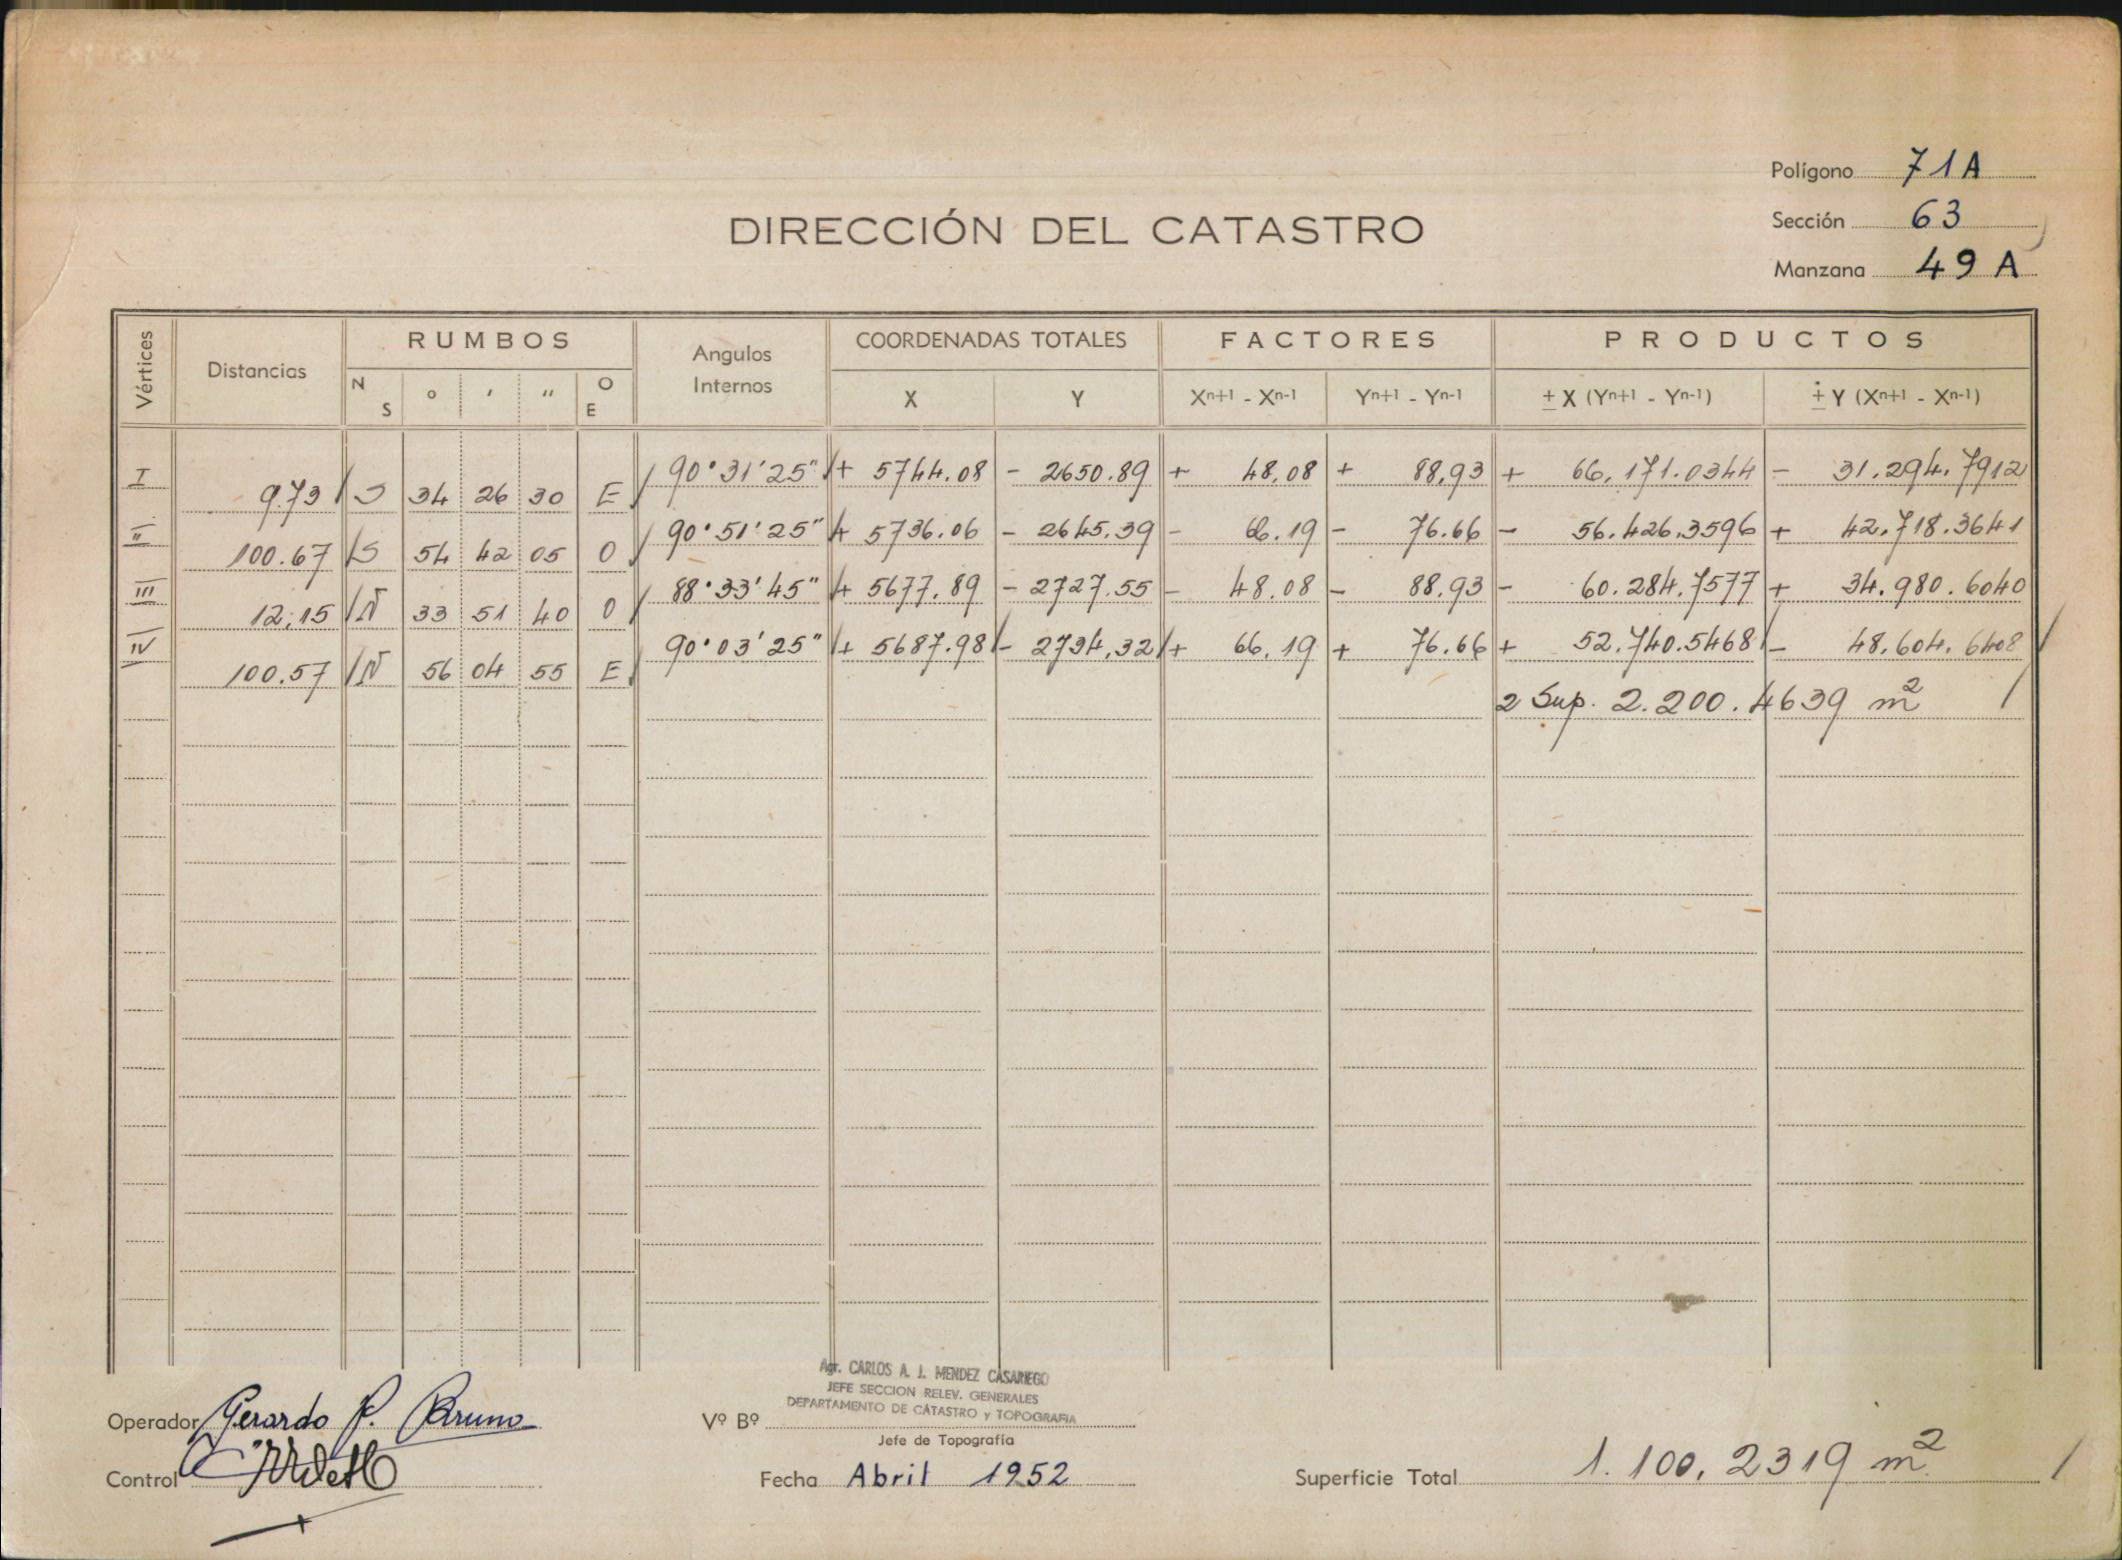 Polígono 71A
DIRECCIÓN DEL CATASTRO
Sección 63
Manzana 49 A
Vértices Distancias RUMBOS Angulos Internos COORDENADAS TOTALES FACTORES PRODUCTOS
N S ° ′ ″ O E X Y Xⁿ⁺¹ - Xⁿ⁻¹ Yⁿ⁺¹ - Yⁿ⁻¹ ± X (Yⁿ⁺¹ - Yⁿ⁻¹) ± Y (Xⁿ⁺¹ - Xⁿ⁻¹)
I 90°31'25" + 5744.08 - 2650.89 + 48,08 + 88,93 + 66,171.0344 - 31.294.7912
9.73 S 34 26 30 E
II 90°51'25" + 5736.06 - 2645.39 - 66.19 - 76.66 - 56.426.3596 + 42.718.3641
100.67 S 54 42 05 O
III 88°33'45" + 5677.89 - 2727.55 - 48.08 - 88.93 - 60.284.7577 + 34.980.6040
12.15 N 33 51 40 O
IV 90°03'25" + 5687.98 - 2734,32 + 66,19 + 76.66 + 52.740.5468 - 48.604.6408
100.57 N 56 04 55 E
2 Sup. 2.200.4639 m²
Agr. CARLOS A. J. MENDEZ CASARIEGO
JEFE SECCION RELEV. GENERALES
DEPARTAMENTO DE CATASTRO y TOPOGRAFIA
Operador Gerardo P. Bruno Vº Bº
Jefe de Topografía
Control Fecha Abril 1952 Superficie Total 1.100,2319 m²